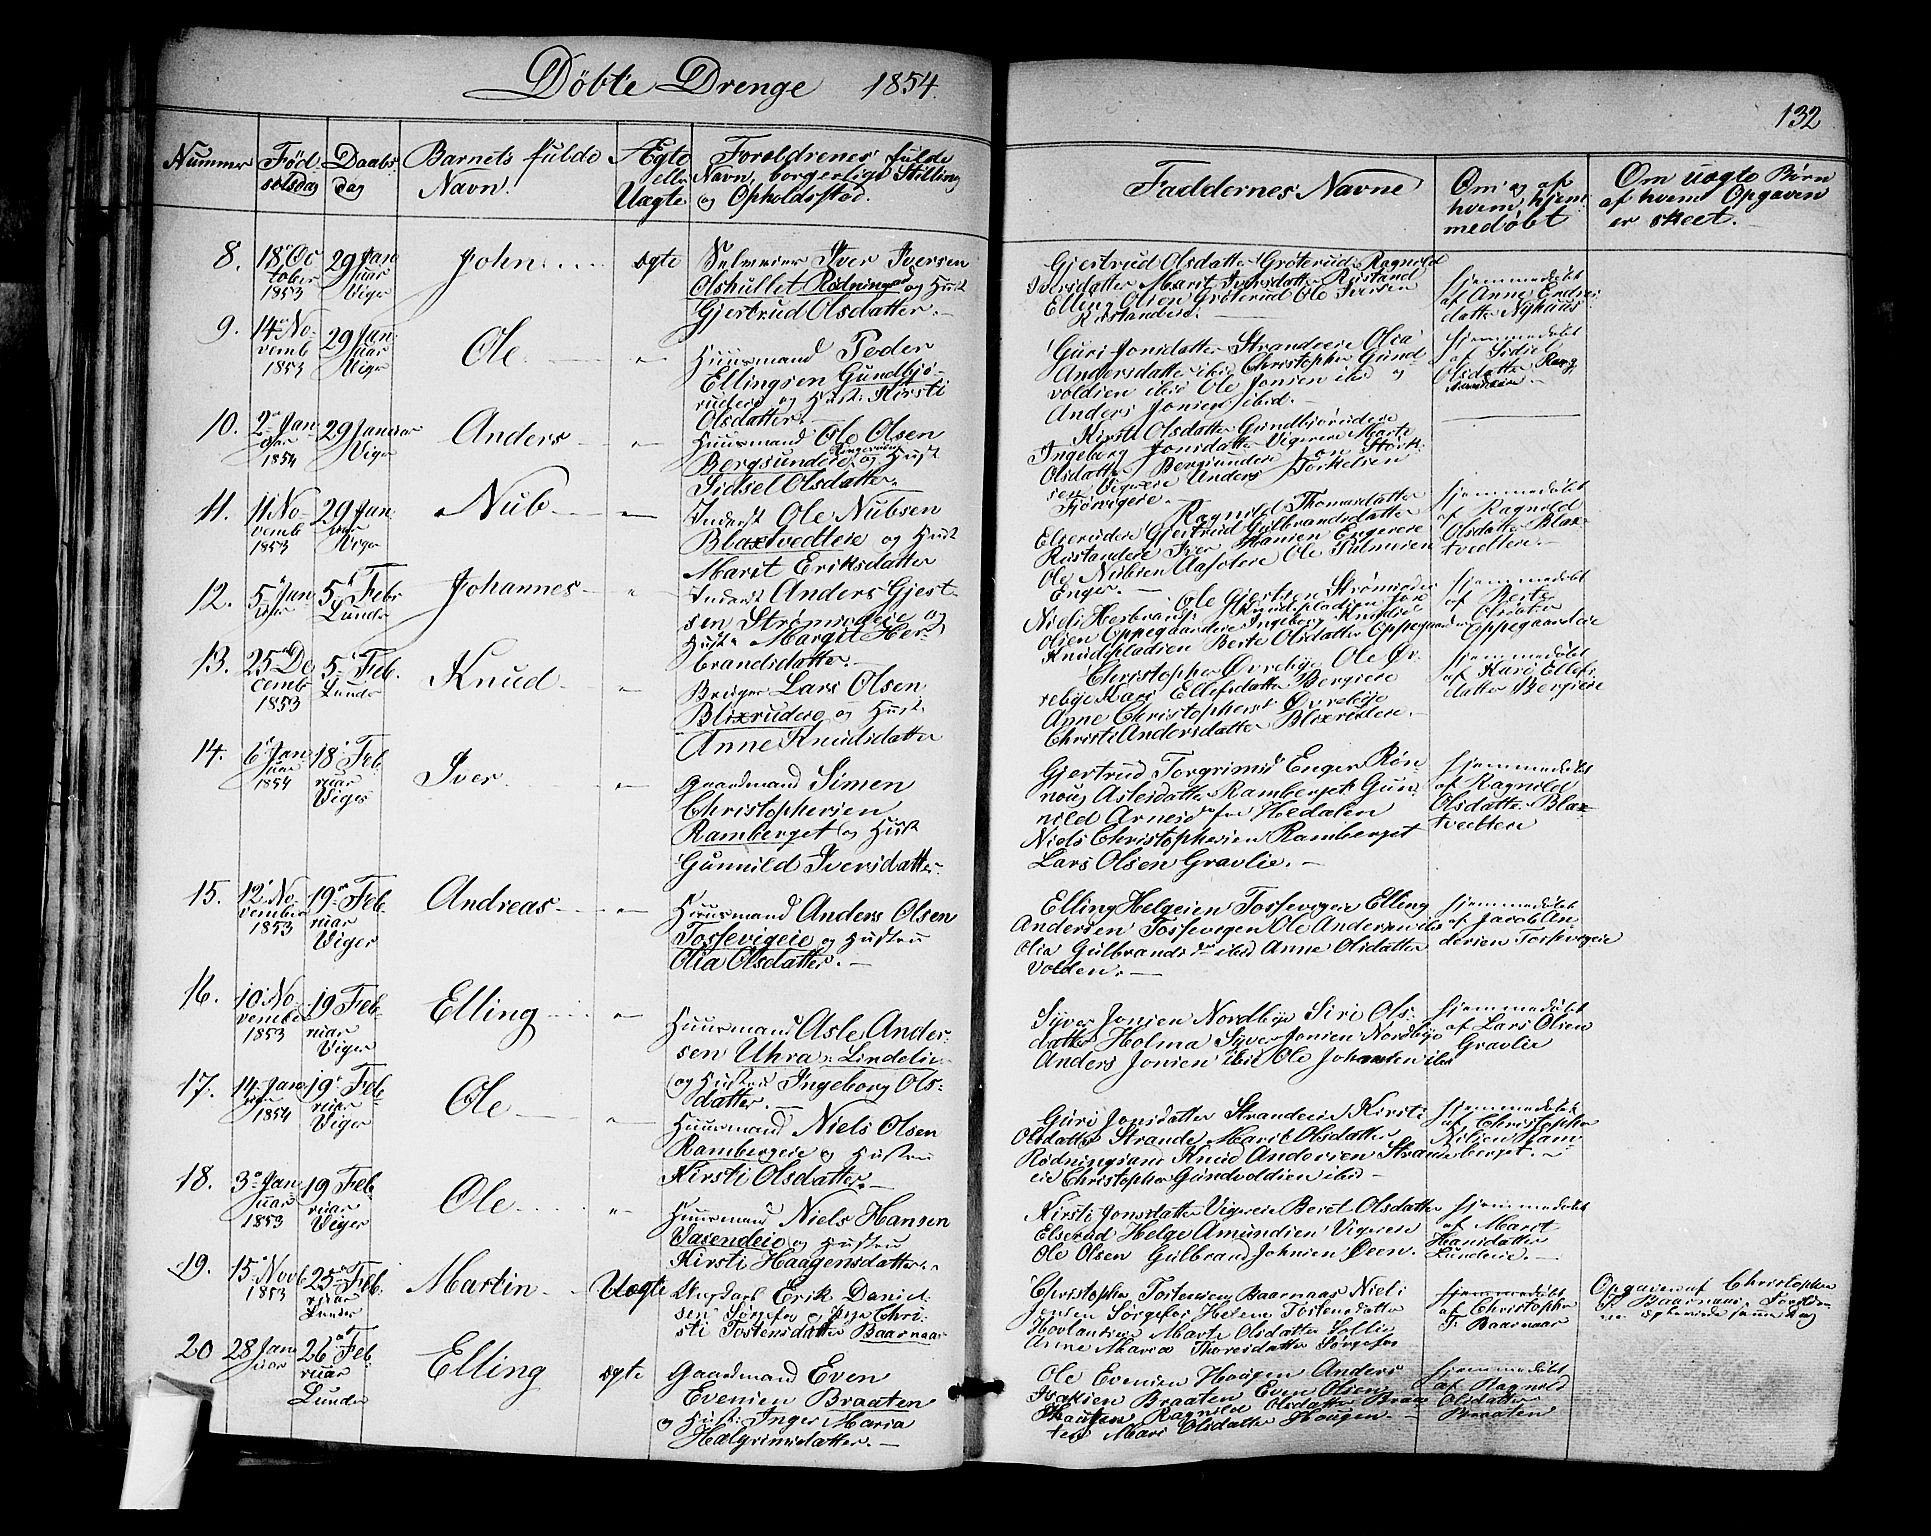 Döbte Drenge 1854.
132
Nummer
Föd:
selsdag
Daabs
dag
Barnets fulde
Navn.
Ægte
ell:
Uægte
Forældrenes fulde
Navn, borgerlige Stilling
og Opholdssted.
Faddernes Navne
Om og af
hvem hjem:
medöbt
Om uægte Börn
af hvem Opgaven
er skeet.
8.
18 Oc
tober
1853
29 Jan
uar
Viger
John
ægte
Selveier Iver Iversen
Olshullet Rödningsand og Hust
Gjertrud Olsdatter.—
Gjertrud Olsdatter Gröterud Ragnild
Iversdatter Marit Iversdatter Rustand
Elling Olsen Gröterud Ole Iversen
Rustandeie.
hjemmedöbt
af Anne Endres
datter Nyhuus
9.
14 No
vemb
1853
29 Jan
uar
Viger
Ole
"
Huusmand Peder
Ellingsen Gundbjö-
rudeie og Hust: Kirsti
Olsdatter.
Guri Jonsdatter Strandeie Olia
Andersdatter ibid Christopher Gund
voldsen ibid Ole Jonsen ibid og
Anders Jonsen ibid.
hjemmedöbt
af Sidsel
Olsdatter Ramb
10.
2 Jan
uar
1854
29 Januar
Viger
Anders
"
Huusmand Ole Olsen
Bergsundeie og Hust
Sidsel Olsdatter.
Kirsti Olsdatter Gundbjörudeie
Ingeborg Jonsdatter Vigereie Marte
Olsdatter Bergsundeie Jon Störk
sen Vigereie Anders Torkelsen
11.
11 No
vemb
1853
29 Jan
uar
Viger
Nub
"
Inderst Ole Nubsen
Blaxtvedteie og Hust
Marit Eriksdatter
Ragnild Thomasdatter
Elserudeie Gjertrud Gulbrandsdatter
Rustandeie Iver Hansen Engereie
Ole Nubsen Aasoleie Ole Palmesen
Enger.
hjemmedöbt
af Ragnild
Olsdatter Blax
tvedteie.
12.
5 Jan
uar
5 Febr
Lunder
Johannes
"
Inderst Anders Gjert
sen Strömsodeie og
Hust: Margit Her
brandsdatter.—
Ole Gjertsen Strömsoder
Niels Herbrands: Knudspladsen Jöre
Olsen Oppegaardeie Ingeborg Knudsd
Knudspladsen Berte Olsdatter Oppegaardeie
hjemmedöbt
af Berte
Olsdatter
Oppegaardeie
13.
25 De
cemb
1853
5 Feb.
Lunder
Knud
"
Bruger Lars Olsen
Blixrudeie og Hust
Anne Knudsdatter
Christopher Övrebye Ole Öv
rebye Kari Ellefsdatter Bergseie
Anne Christophersd Övrebye
Christi Andersdatter Blixrudeie.
hjemmedöbt
af Kari Ellefs
datter Bergseie
14.
6 Jan
uar
1854
18 Feb
ruar
Viger
Iver
"
Gaardmand Simen
Christophersen
Ramberget og Hust
Gunnild Iversdatter
Gjertrud Torgrimsd Enger Rön-
noug Aslesdatter Ramberget Gun
nild Arnesd fra Hedalen
Niels Christophersen Ramberget
Lars Olsen Gravlie.—
hjemmedöbt
af Ragnild
Olsdatter Blax
tvedteie
15.
12 No
vember
1853
19 Feb
ruar
Viger
Andreas
"
Huusmand Anders Olsen
Tossevigeie og Hustru
Olia Olsdatter.—
Elling Helgesen Tossevigeie Elling
Andersen Tossevigen Ole Andersen ibid
Olia Gulbrandsdr ibid Anne Olsdatter
Volden.—
hjemmedöbt
af Jacob An
dersen Tossevigeie
16.
10 No
vember
1853
19 Feb
ruar
Viger
Elling
"
Huusmand Asle Ander
sen Uhra Lindelie
og Hustru Ingeborg Ols
datter.—
Syver Jonsen Nordbye Siri Ols
datter Holma Syver Jonsen Nordbye
Anders Jonsen ibid Ole Johansen ibid
hjemmedöbt
af Lars Olsen
Gravlie
17.
14 Jan
uar
1854
19 Feb
ruar
Viger
Ole
"
Huusmand Niels Olsen
Rambergeie og Hustru
Kirsti Olsdatter.—
Guri Jonsdatter Strandeie Kirsti
Olsdatter Strande Marit Olsdatter
Rödningsand Knud Andersen Strand
eie Christopher Gundvoldsen ibid.—
hjemmedöbt
af Christopher
Nilsen Ram
berget.
18.
3 Jan
uar
1853
19 Feb
ruar
Viger
Ole
"
Huusmand Niels Hansen
Vasendeie og Hustru
Kirsti Haagensdatter.
Kirsti Jonsdatter Vigereie Beret Olsdatter
Elserud Helge Amundsen Vigereie
Ole Olsen Gulbrand Johnsen Öeen.
hjemmedöbt
af Marit
Hansdatter
Lundeie.—
19.
15 Novb
1853
25 Feb
ruar
Lunder
Martin
Uægte
Ungkarl Erik Daniel
sen Sörgefos og Pige Chri
sti Tostensdatter Baarnaas
Christopher Tostensen Baarnaas Niels
Jensen Sörgefos Helene Tostensdatter
Hovlandsen Marte Olsdatter Sollie
Anne Maria Thoresdatter Sörgefos
hjemmedöbt
af Christopher
T. Baarnaas
Opgaven af Christopher
T. Baarnaas
samme Dag
20
28 Jan
uar
26 Feb
ruar
Lunder
Elling
ægte
Gaardmand Even
Evensen Braaten
og Hust: Inger Maria
Halgrimsdatter.—
Ole Evensen Haugen Anders
Isaksen Braaten Even Olsen
Haugen Ragnild Olsdatter Braa
ten Mari Olsdatter Haugen.—
hjemmedöbt
af Ragnild
Olsdatter
Braaten